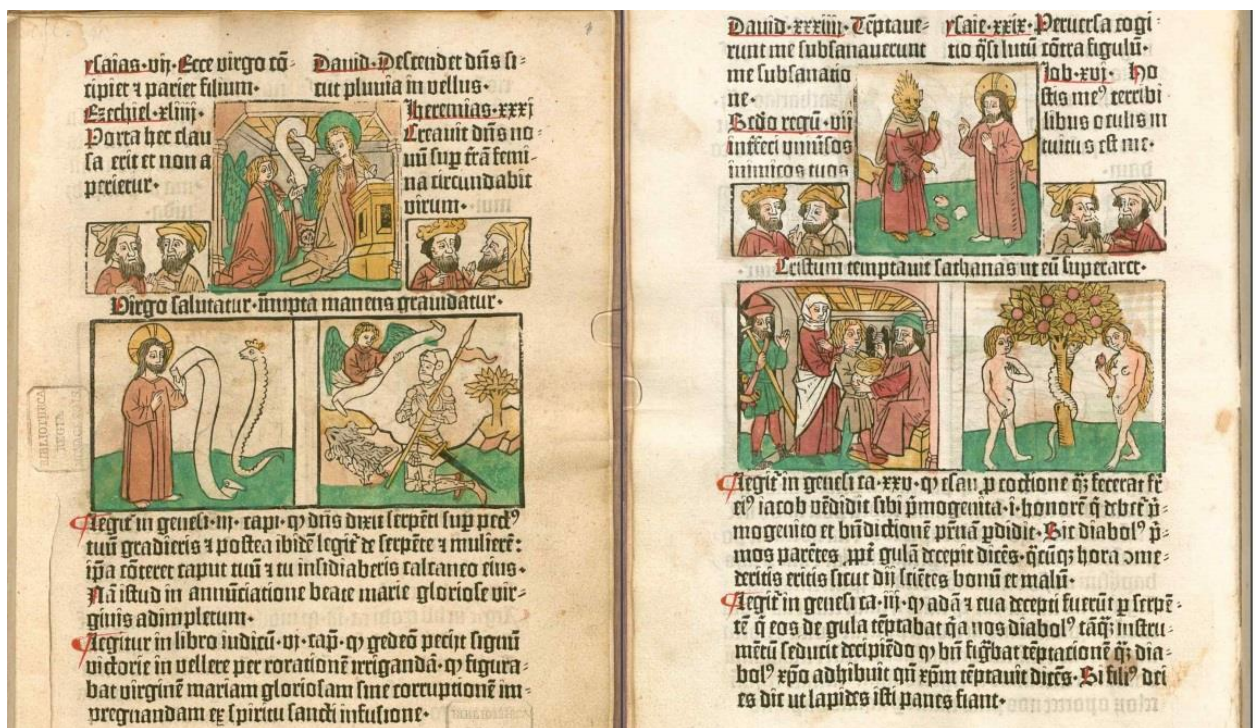 ysaias·vij·Ecce virgo cō-
cipiet ⁊ pariet filium·
Dauid·Descendet dn̄s si-
cut pluuia in vellus·
Ezechiel·xliiij·
Porta hec clau
sa erit et non a
perietur·
Jheremias·xxxi
Creauit dn̄s no-
uū sup̄ trā femi-
na circundabit
virum·
Virgo salutatur·īnupta manens grauidatur·
Legit̄ in genesi·iij·capi·ꝙ dn̄s dixit serpēti sup̄ pectꝰ
tuū gradieris ⁊ postea ibidē legit̄ de serpēte ⁊ muliere:
ip̄a cōteret caput tuū ⁊ tu insidiaberis calcaneo eius·
Nā istud in annūciatione beate marie gloriose vir-
ginis adimpletum·
Legitur in libro iudicū·vj·cap̄·ꝙ gedeō peciit signū
victorie in vellere per rorationē irrigandā·ꝙ figura-
bat virginē mariam gloriosam sine corruptionē im-
pregnandam ex spiritu sancti infusione·
BIBLIOTHECA
REGIA
Dauid·xxxiiij·Tēptaue-
runt me subsanauerunt
me subsanatio
ne·
ysaie·xxix·Peruersa cogi-
tio q̄si lutū cōtra figulū·
Secdo regū·vij
intfeci vniūsos
inimicos tuos
Job·xvj· Ho
stis meꝰ terribi
libus oculis in
tuitus est me·
Cristum temptauit sathanas vt eū superaret·
Legit̄ in genesi ca·xxv·ꝙ esau ꝓ coctione q̄ʒ fecerat fr̄
eiꝰ iacob vēdidit sibi p̄mogenita·i·honorē q̄ debet̄ p̄-
mogenito et bn̄dictionē pr̄nā ꝑdidit·Sic diabolꝰ p̄-
mos parētes ꝓpt̄ gulā decepit dicēs·q̄cūqʒ hora ↄme-
deritis eritis sicut dij sciētes bonū et malū·
Legit̄ in genesi ca·iij·ꝙ adā ⁊ eua decepti fuerūt ꝑ serpē-
tē q̄ eos de gula tēptabat q̄a nos diabolꝰ tāqʒ instru-
mētū seducit decipiēdo ꝙ bn̄ fiḡbat tēptationē q̄ʒ dia-
bolꝰ xp̄o adhibuit qn̄ xp̄m tēptauit dicēs·Si filiꝰ dei
es dic vt lapides isti panes fiant·